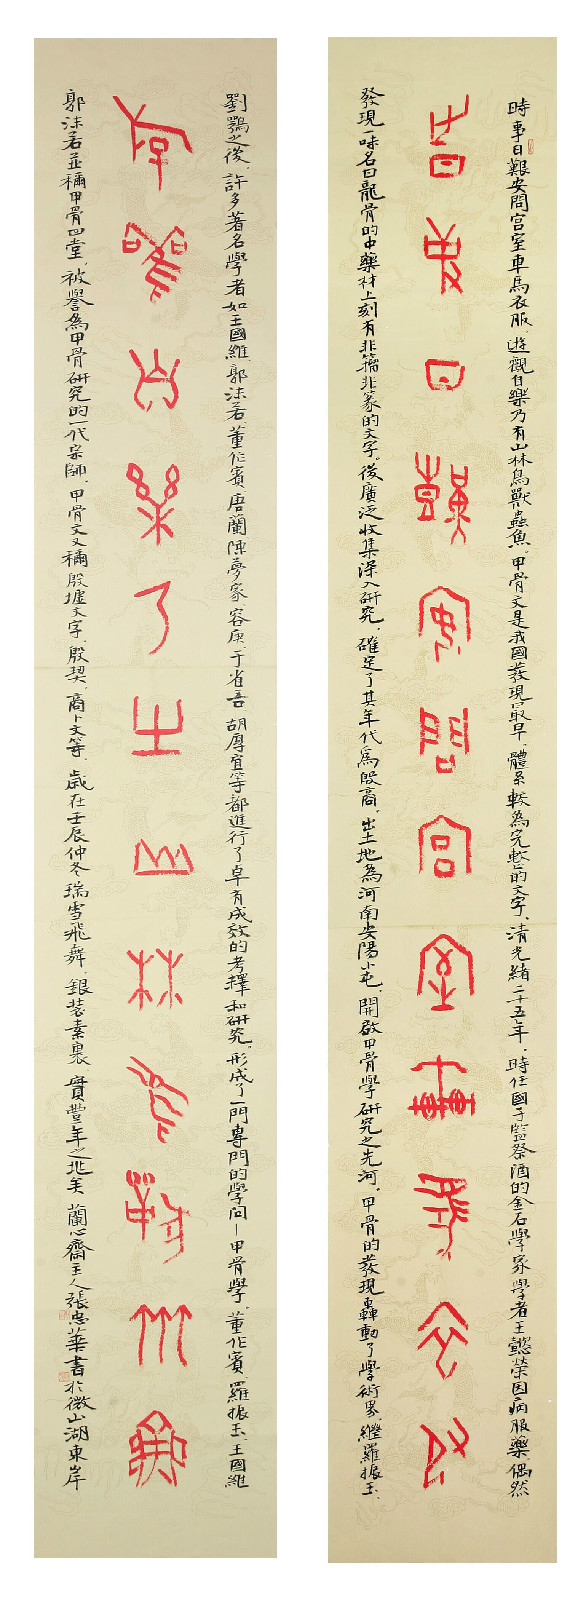 時事日艱安問宮室車馬衣服
遊觀自樂乃有山林鳥獸蟲魚
時事日艱安問宮室車馬衣服，遊觀自樂乃有山林鳥獸蟲魚。甲骨文是我國發現最早，體系較為完整的文字。清光緒二十五年，時任國子監祭酒的金石學家學者王懿榮因病服藥，偶然
發現一味名曰龍骨的中藥材上刻有非籀非篆的文字。後廣泛收集深入研究，確定了其年代為殷商，出土地為河南安陽小屯，開啟甲骨學研究之先河。甲骨的發現轟動了學術界，繼羅振玉、
劉鶚之後，許多著名學者如王國維、郭沫若、董作賓、唐蘭、陳夢家、容庚、于省吾、胡厚宣等都進行了卓有成效的考擇和研究，形成了一門專門的學問—甲骨學。董作賓、羅振玉、王國維
郭沫若並稱甲骨四堂，被譽為甲骨研究的一代宗師。甲骨文又稱殷墟文字、殷契、商卜文等。歲在壬辰仲冬瑞雪飛舞，銀裝素裹，實豐年之兆矣。蘭心齋主人張忠華書於微山湖東岸